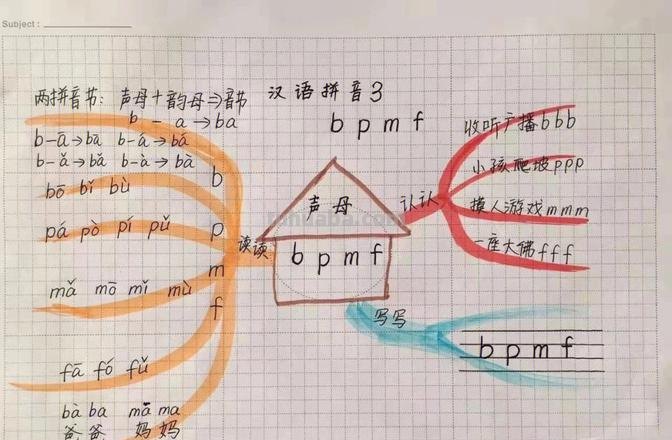 Subject:
汉语拼音3
b p m f
两拼音节: 声母+韵母⇒音节
b - a → ba
b-ā→bā b-á→bá
b-ǎ→bǎ b-à→bà
bō bǐ bù
pá pò pí pǔ
mǎ mō mǐ mù
fā fó fǔ
bà ba mā ma
爸爸 妈妈
b
p
m
f
读读
声母
b p m f
认认
收听广播bbb
小孩爬坡ppp
摸人游戏mmm
一座大佛fff
写写
b p m f